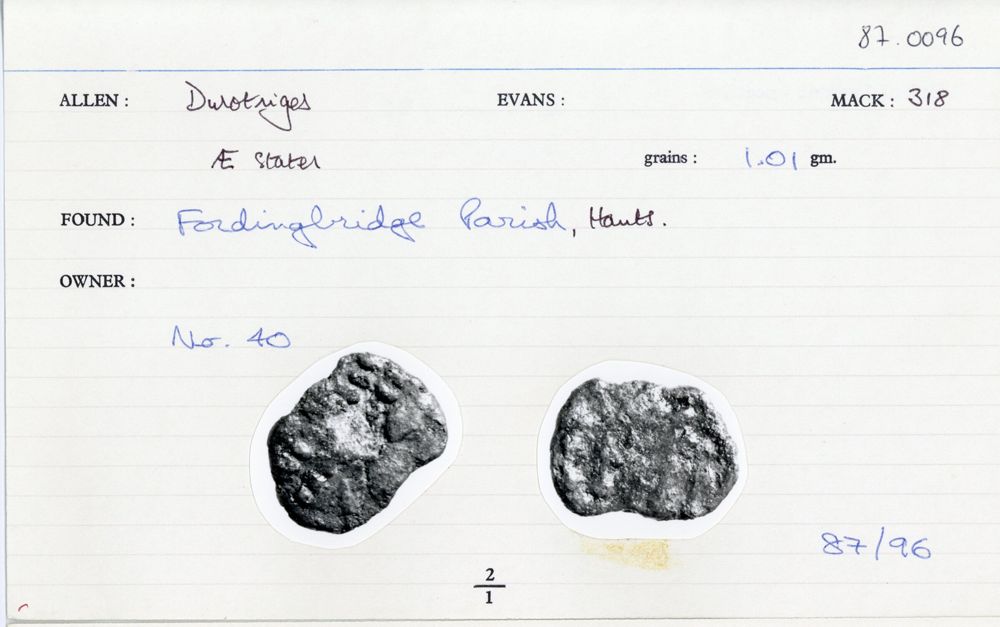 87.0096
ALLEN : Durotriges EVANS : MACK : 318
Æ Stater grains : 1.01 gm.
FOUND : Fordingbridge Parish, Hants.
OWNER :
No. 40
87/96
2
1